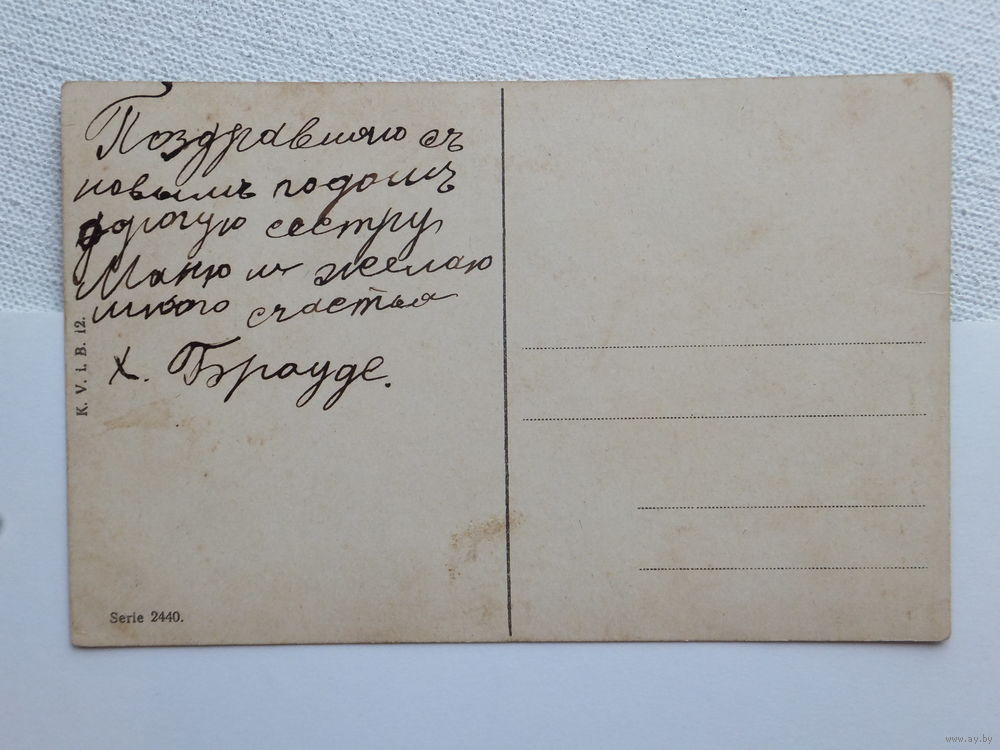 Поздравляю съ
новымъ годомъ
дорогую сестру
Маню и желаю
много счастья
Х. Брауде.
K. V. i. B. 12.
Serie 2440.
www.ay.by